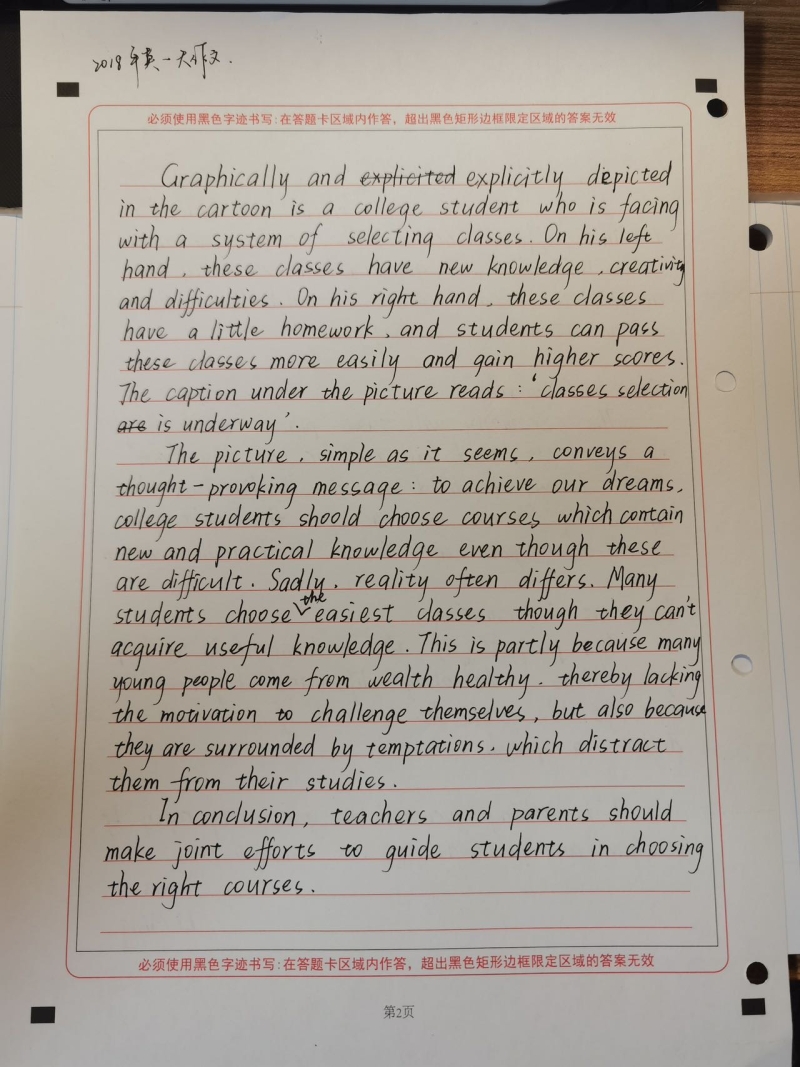 2018年英一大作文.
必须使用黑色字迹书写:在答题卡区域内作答，超出黑色矩形边框限定区域的答案无效
Graphically and explicited explicitly depicted
in the cartoon is a college student who is facing
with a system of selecting classes. On his left
hand, these classes have new knowledge, creativity
and difficulties. On his right hand, these classes
have a little homework, and students can pass
these classes more easily and gain higher scores.
The caption under the picture reads: 'classes selection
are is underway'.
The picture, simple as it seems, conveys a
thought-provoking message: to achieve our dreams,
college students shoold choose courses which contain
new and practical knowledge even though these
are difficult. Sadly, reality often differs. Many
students choose the easiest classes though they can't
acquire useful knowledge. This is partly because many
young people come from wealth healthy, thereby lacking
the motivation to challenge themselves, but also because
they are surrounded by temptations, which distract
them from their studies.
In conclusion, teachers and parents should
make joint efforts to guide students in choosing
the right courses.
必须使用黑色字迹书写:在答题卡区域内作答，超出黑色矩形边框限定区域的答案无效
第2页